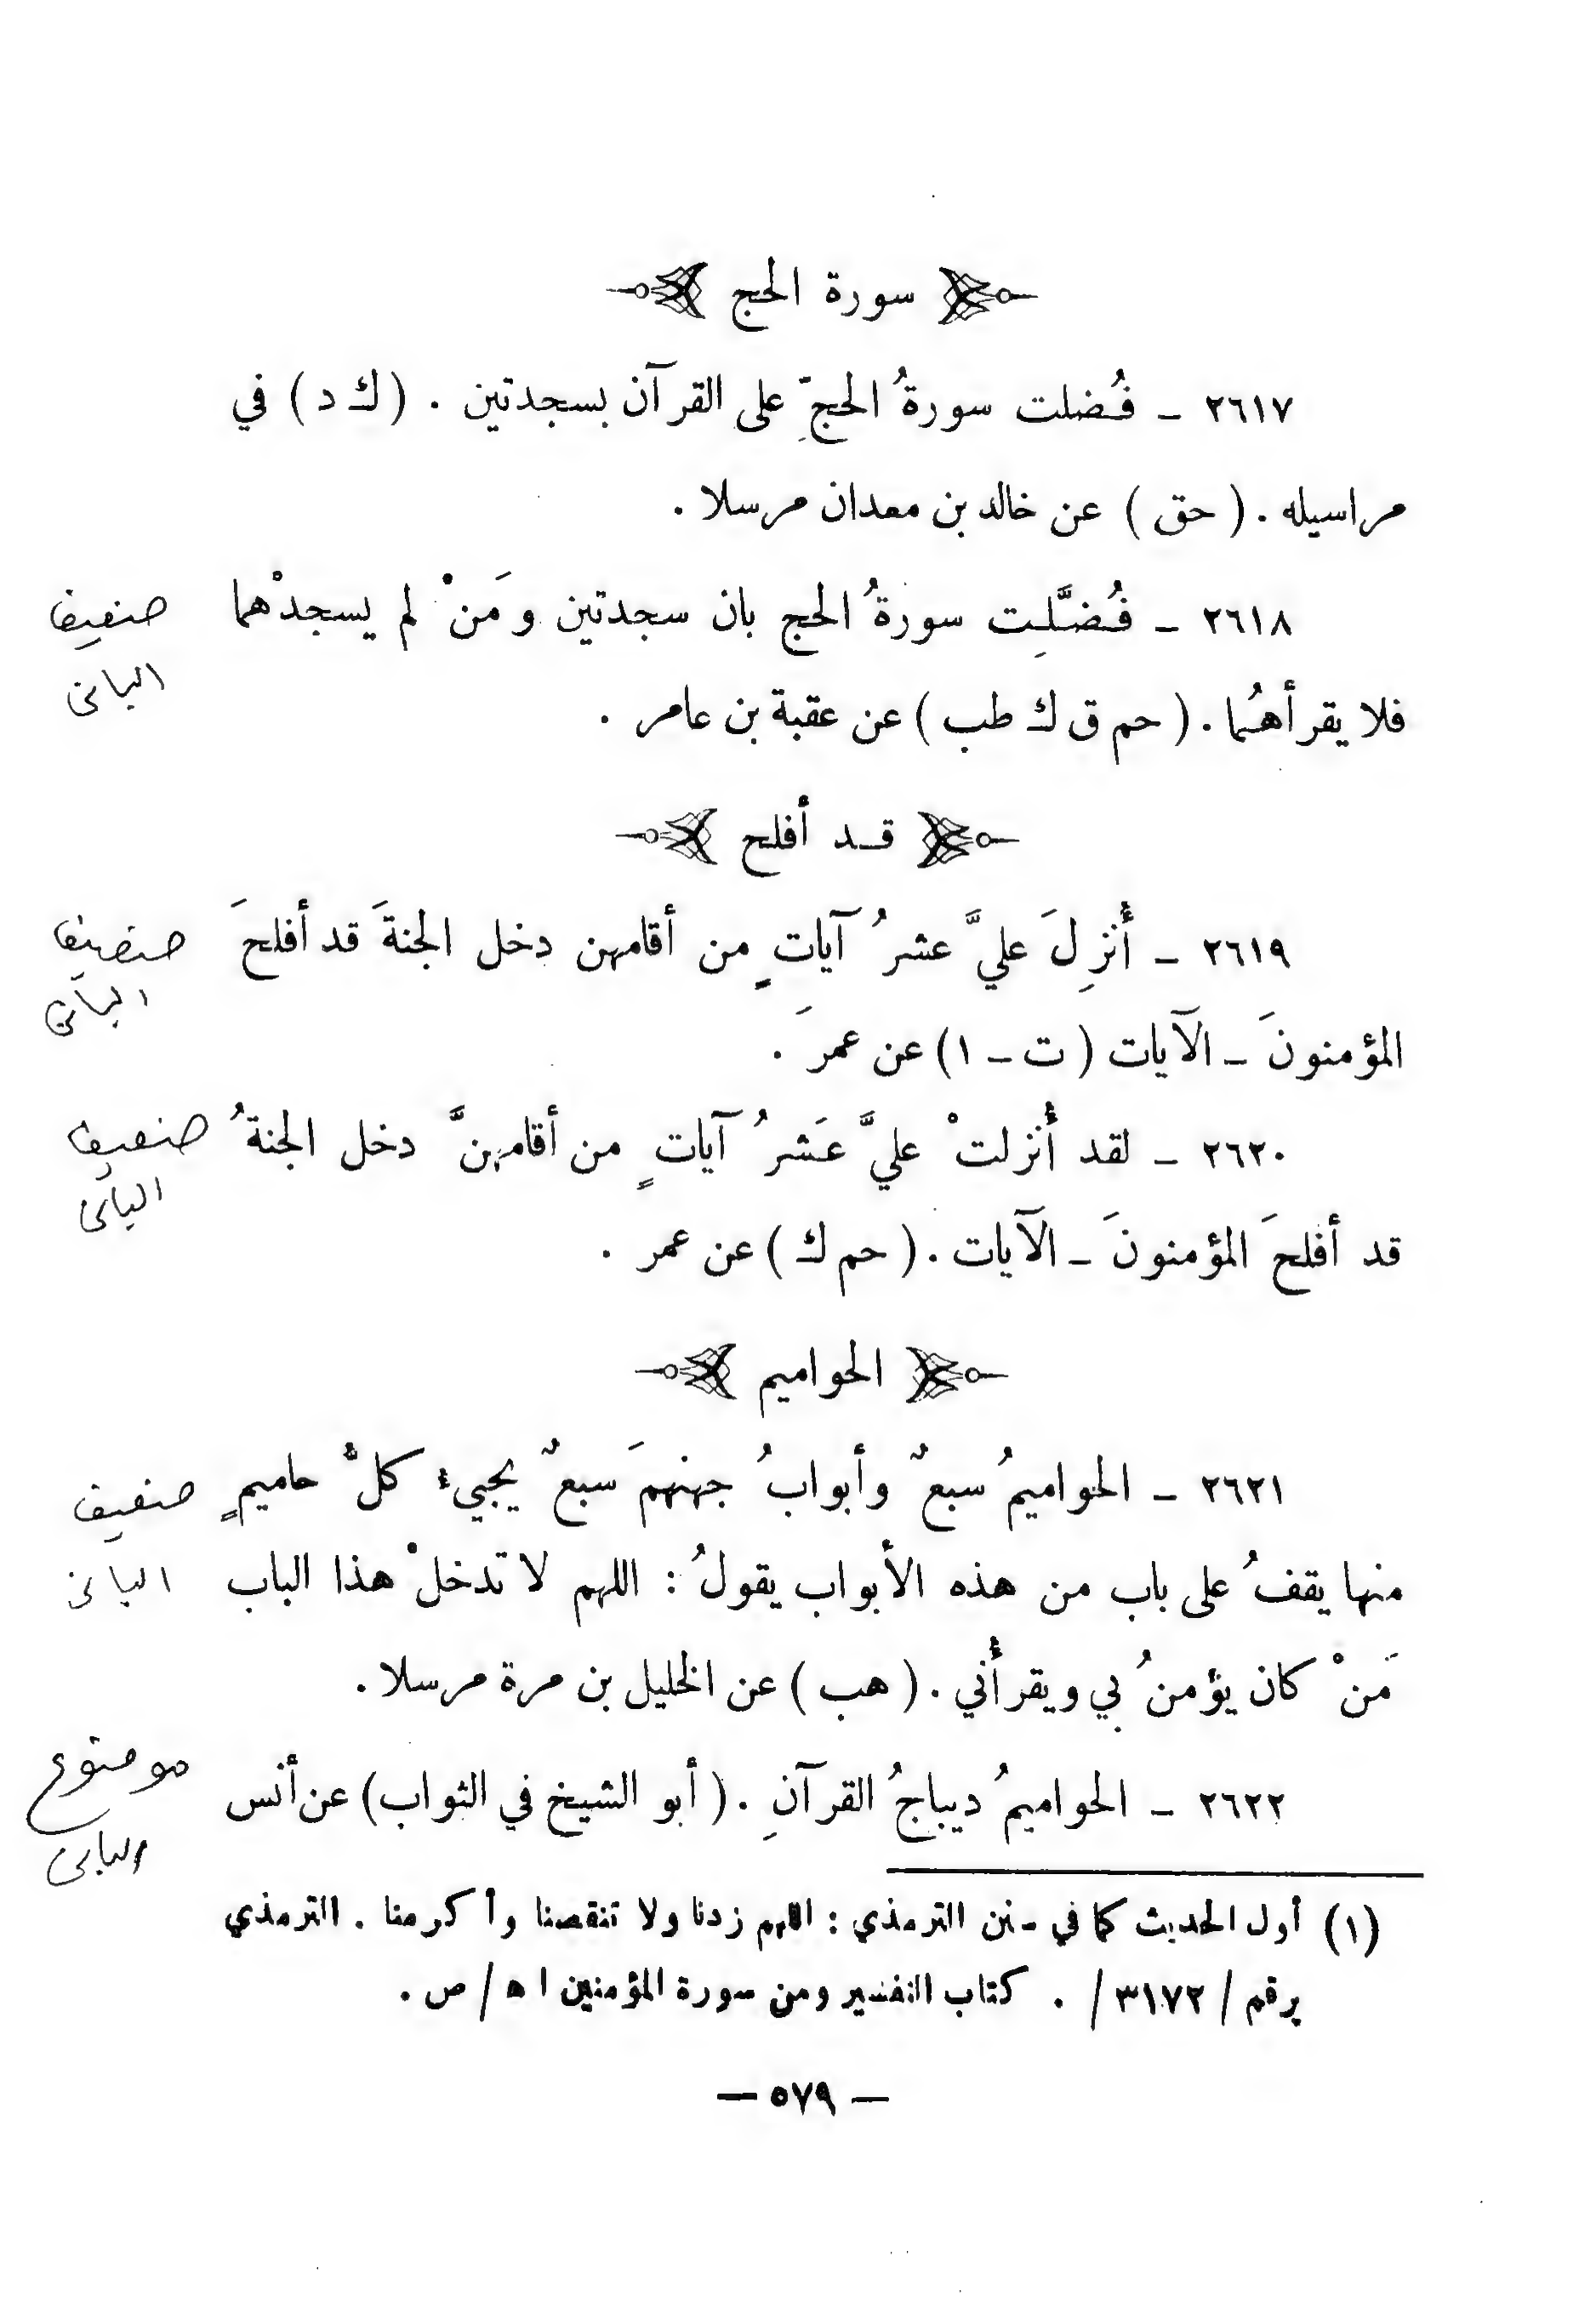 سورة الحج
٢٦١٧ - فُضلت سورةُ الحجِّ على القرآن بسجدتين . (ك د) في
مراسيله . (حق) عن خالد بن معدان مرسلا .
٢٦١٨ - فُضِّلت سورةُ الحج بان سجدتين ومَنْ لم يسجدْهما
ضعيف
البانى
فلا يقرأهُما . (حم ق ك طب) عن عقبة بن عامر .
قد أفلح
٢٦١٩ - أُنزِلَ عليَّ عشرُ آياتٍ من أقامهن دخل الجنةَ قد أفلحَ
ضعيف
البانى
المؤمنونَ - الآيات (ت - ١) عن عمرَ .
٢٦٢٠ - لقد أُنزلتْ عليَّ عَشرُ آياتٍ من أقامهنَّ دخل الجنةُ
ضعيف
البانى
قد أفلحَ المؤمنونَ - الآيات . (حم ك) عن عمر .
الحواميم
٢٦٢١ - الحواميمُ سبعٌ وأبوابُ جهنمَ سبعٌ يجيء كلُّ حاميمٍ
ضعيف
منها يقفُ على باب من هذه الأبواب يقولُ : اللهم لا تدخلْ هذا الباب
البانى
مَنْ كان يؤمنُ بي ويقرأُني . (هب) عن الخليل بن مرة مرسلا .
٢٦٢٢ - الحواميمُ ديباجُ القرآنِ . (أبو الشيخ في الثواب) عن أنس
موضوع
البانى
(١) أول الحديث كما في سنن الترمذي : اللهم زدنا ولا تنقصنا وأكرمنا . الترمذي
برقم /٣١٧٢/ . كتاب التفسير ومن سورة المؤمنين اه/ص .
— ٥٧٩ —